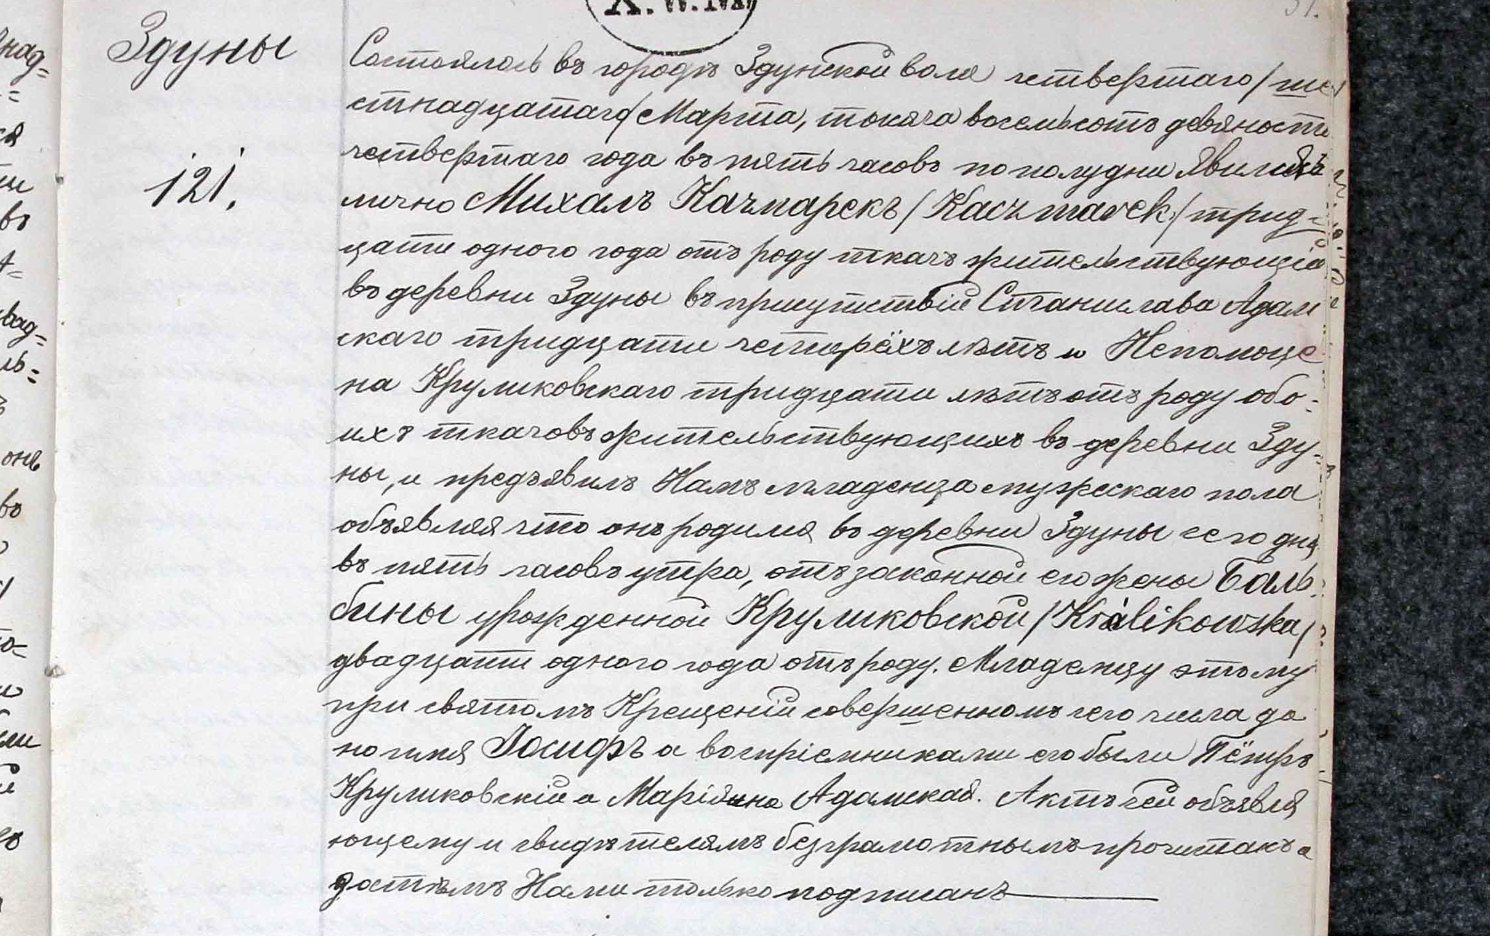 Х.W.М
31.
Здуны
121.
Состоялось въ городѣ Здунской воле четвертаго / ше
стнадцатаго / Марта, тысяча восемьсотъ девяносто
четвертаго года въ пять часовъ по полудни Явился
лично Михалъ Качмарекъ / Kaczmarek / трид=
цати одного года отъ роду ткачъ жительствующій
въ деревни Здуны въ присутствіи Станислава Адам
скаго тридцати четырёхъ лѣтъ и Непомуце
на Круликовскаго тридцати лѣтъ отъ роду обо=
ихъ ткачовъ жительствующихъ въ деревни Зду=
ны, и предъявилъ Намъ младенца мужескаго пола
объявляя что онъ родился въ деревни Здуны сего дня
въ пять часовъ утра, отъ законной его жены Баль
бины урожденной Круликовской / Królikowska /
двадцати одного года отъ роду. Младенцу этому
при святомъ Крещеніи совершенномъ сего числа да
но имя Іосифъ а воспріемниками его были Пётръ
Круликовскій и Маріянна Адамская. Актъ сей объявля
ющему и свидѣтелямъ безграмотнымъ прочитанъ а
Нами только подписанъ